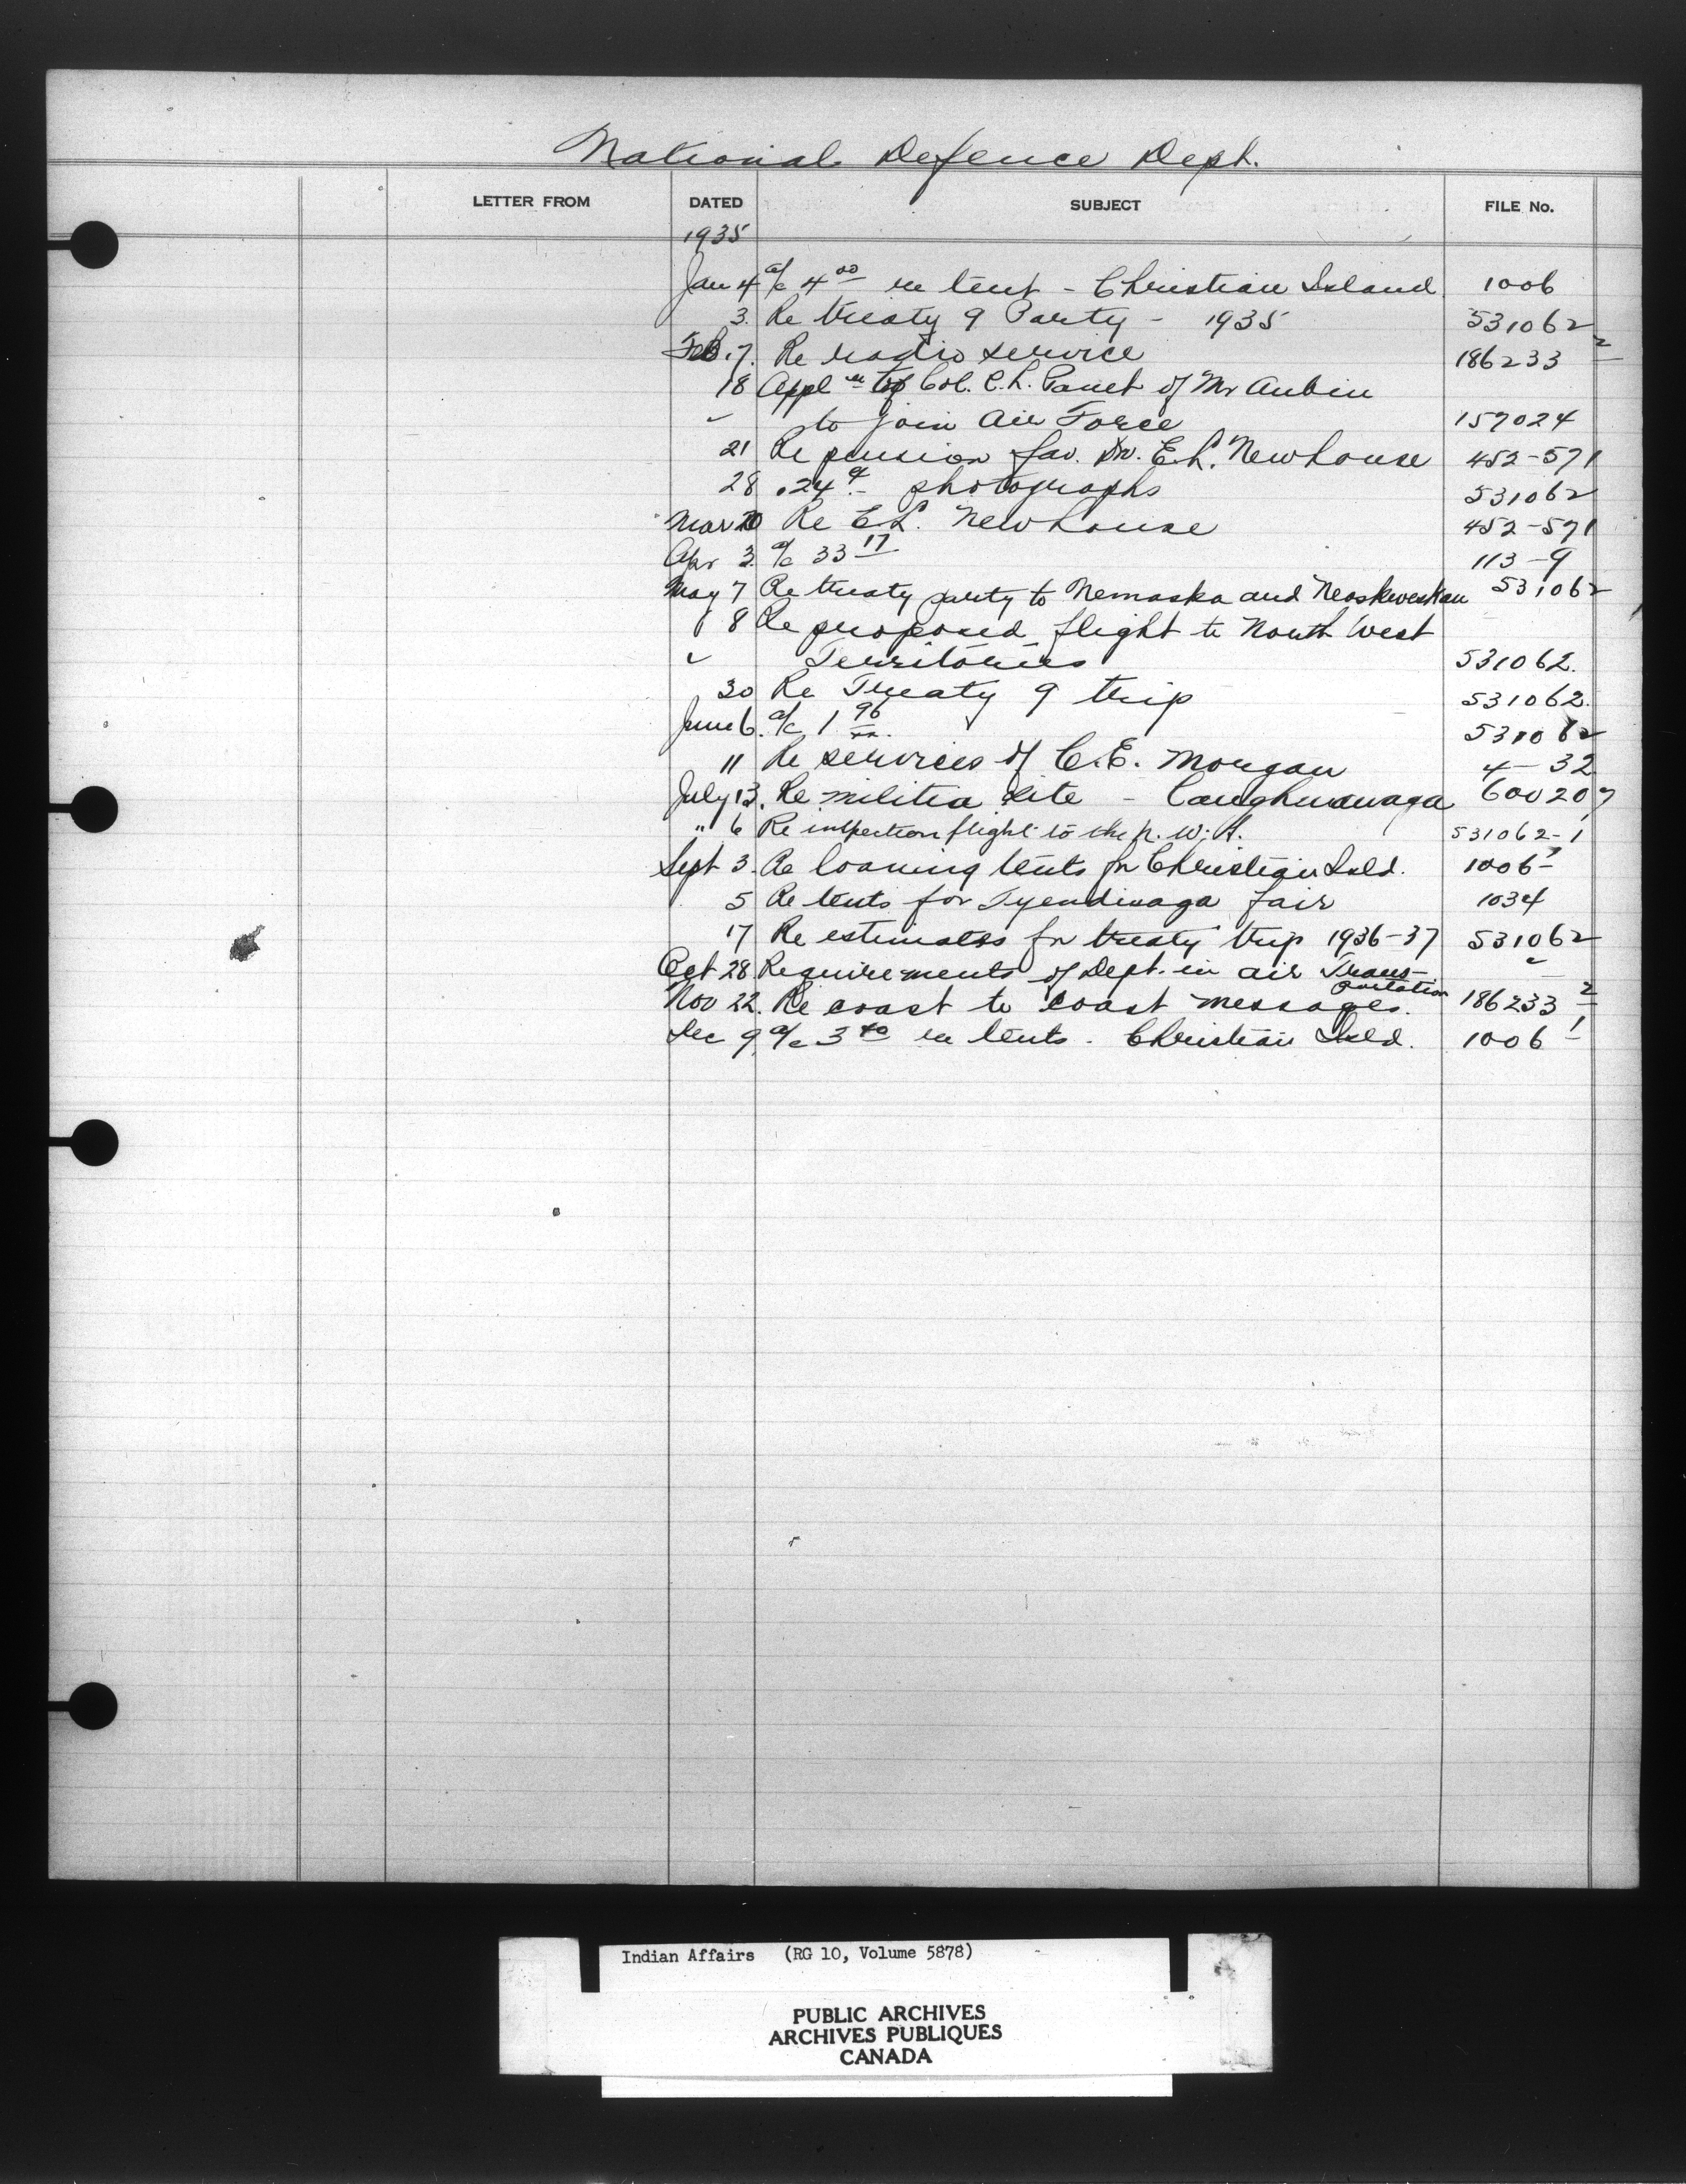 National Defence Dept.
LETTER FROM DATED SUBJECT FILE No.
1935
Jan 4 a/c 4 00 re tent - Christian Island 1006
3. Re treaty 9 Party - 1935 531062
Feb. 7. Re radio service 186233 2
18 Appl'n to Col. E. L. Panet of Mr Aubin
" to join Air Force 157024
21 Re pension fav. Dr. E. L. Newhouse 452-571
28 .24 photographs 531062
Mar 20 Re E L. Newhouse 452-571
Apr 3. a/c 33 17 113-9
May 7 Re treaty party to Nemaska and Neoskweskau 531062
8 Re proposed flight to North West
" Territories 531062.
30 Re Treaty 9 trip 531062.
June 6. a/c 1 96 531062
11 Re services of C. E. Morgan 4-32
July 13. Re militia site - Caughnawaga 600207
" 6 Re inspection flight to the N. W. T. 531062-1
Sept 3. Re loaning tents for Christian Isld. 1006 1
5 Re tents for Tyendinaga fair 1034
17 Re estimates for treaty trip 1936-37 531062
Oct 28 Requirements of Dept. in air Trans- "
portation
Nov 22. Re coast to coast messages. 186233 2
Dec 9, a/c 3 40 re tents - Christian Isld. 1006 1
Indian Affairs (RG 10, Volume 5878)
PUBLIC ARCHIVES
ARCHIVES PUBLIQUES
CANADA